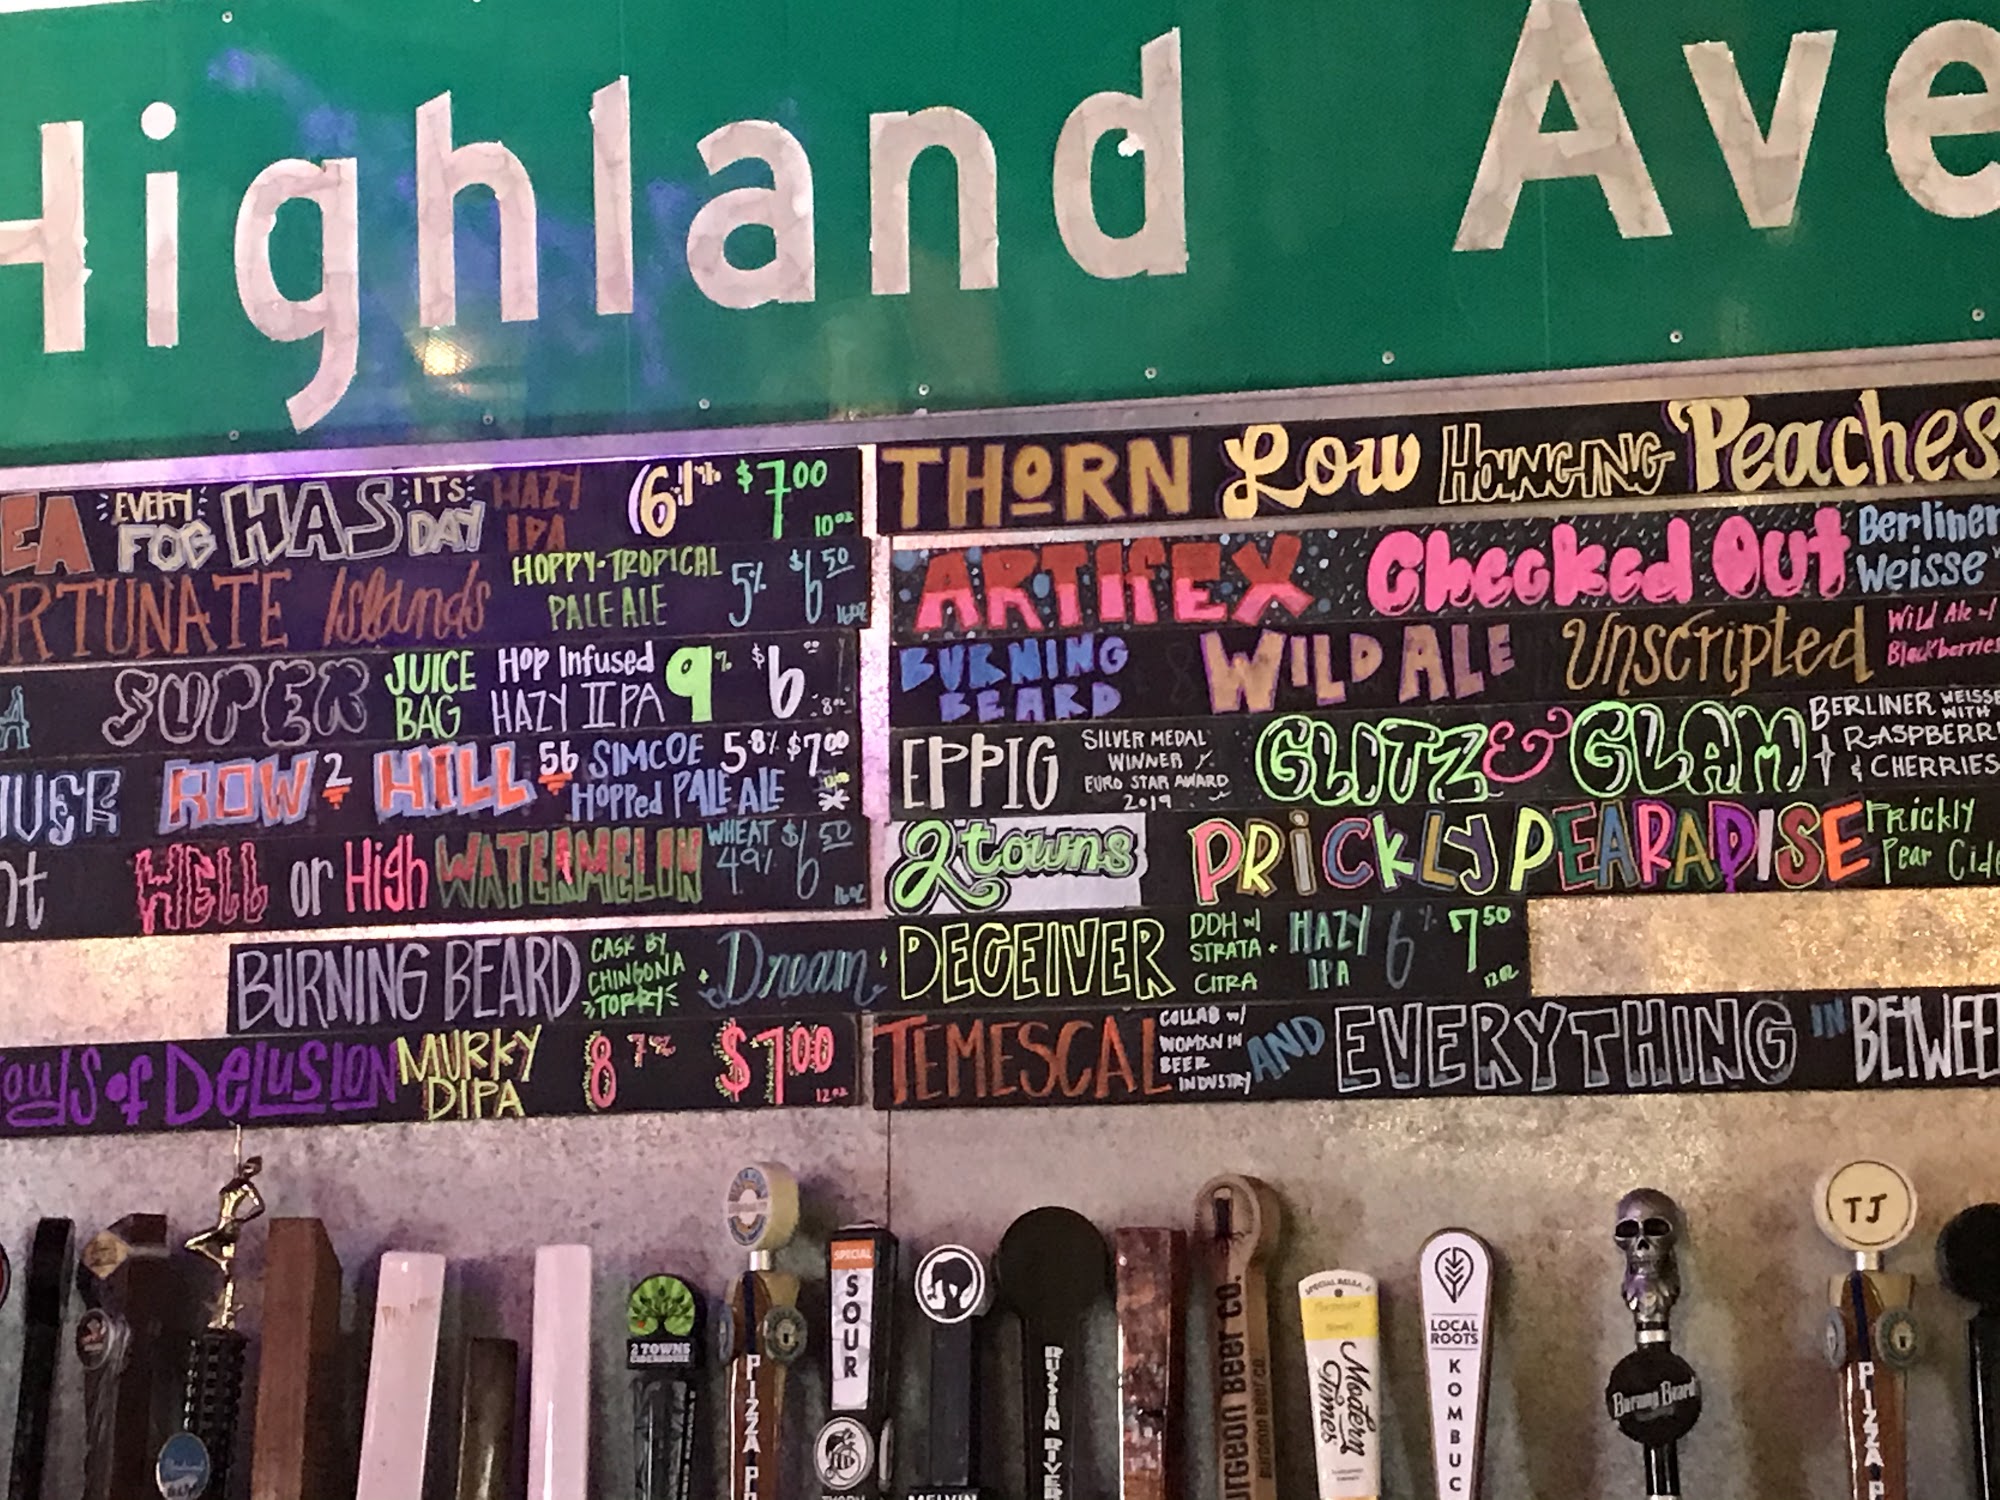 Highland Ave
EA EVERY FOG HAS ITS DAY HAZY IPA 6.1% $7.00 10oz
ORTUNATE Islands HOPPY-TROPICAL PALE ALE 5% $6.50 16oz
SUPER JUICE BAG Hop Infused HAZY IIPA 9% $6 8oz
ROW 2 HILL 56 SIMCOE Hopped PALE ALE 5.8% $7.00
HELL or High WATERMELON WHEAT 4.9% $6.50 16oz
BURNING BEARD CASK BY CHINGONA TORRY Dream
DELUSION MURKY DIPA 8.7% $7.00 12oz
THORN Low HANGING Peaches
ARTIFEX Checked Out Berliner Weisse
BURNING BEARD WILD ALE Unscripted Wild Ale w/ Blackberries
EPPIG SILVER MEDAL WINNER EURO STAR AWARD 2019 GLITZ & GLAM BERLINER WEISSE WITH RASPBERRI & CHERRIES
2 towns PRICKLY PEARADISE Prickly Pear Cide
DECEIVER DDH w/ STRATA + CITRA HAZY IPA 6% 7.50 12oz
TEMESCAL COLLAB w/ WOMXN IN BEER INDUSTRY AND EVERYTHING IN BETWEE
2 TOWNS CIDERHOUSE
PIZZA PO
SPECIAL SOUR
THORN
MELVIN
RUSSIAN RIVER
URGEON BEER CO.
BURGEON BEER CO.
SPECIAL RELEASE
Modern Times
LOCAL ROOTS
KOMBUC
Burning Beard
TJ
PIZZA P